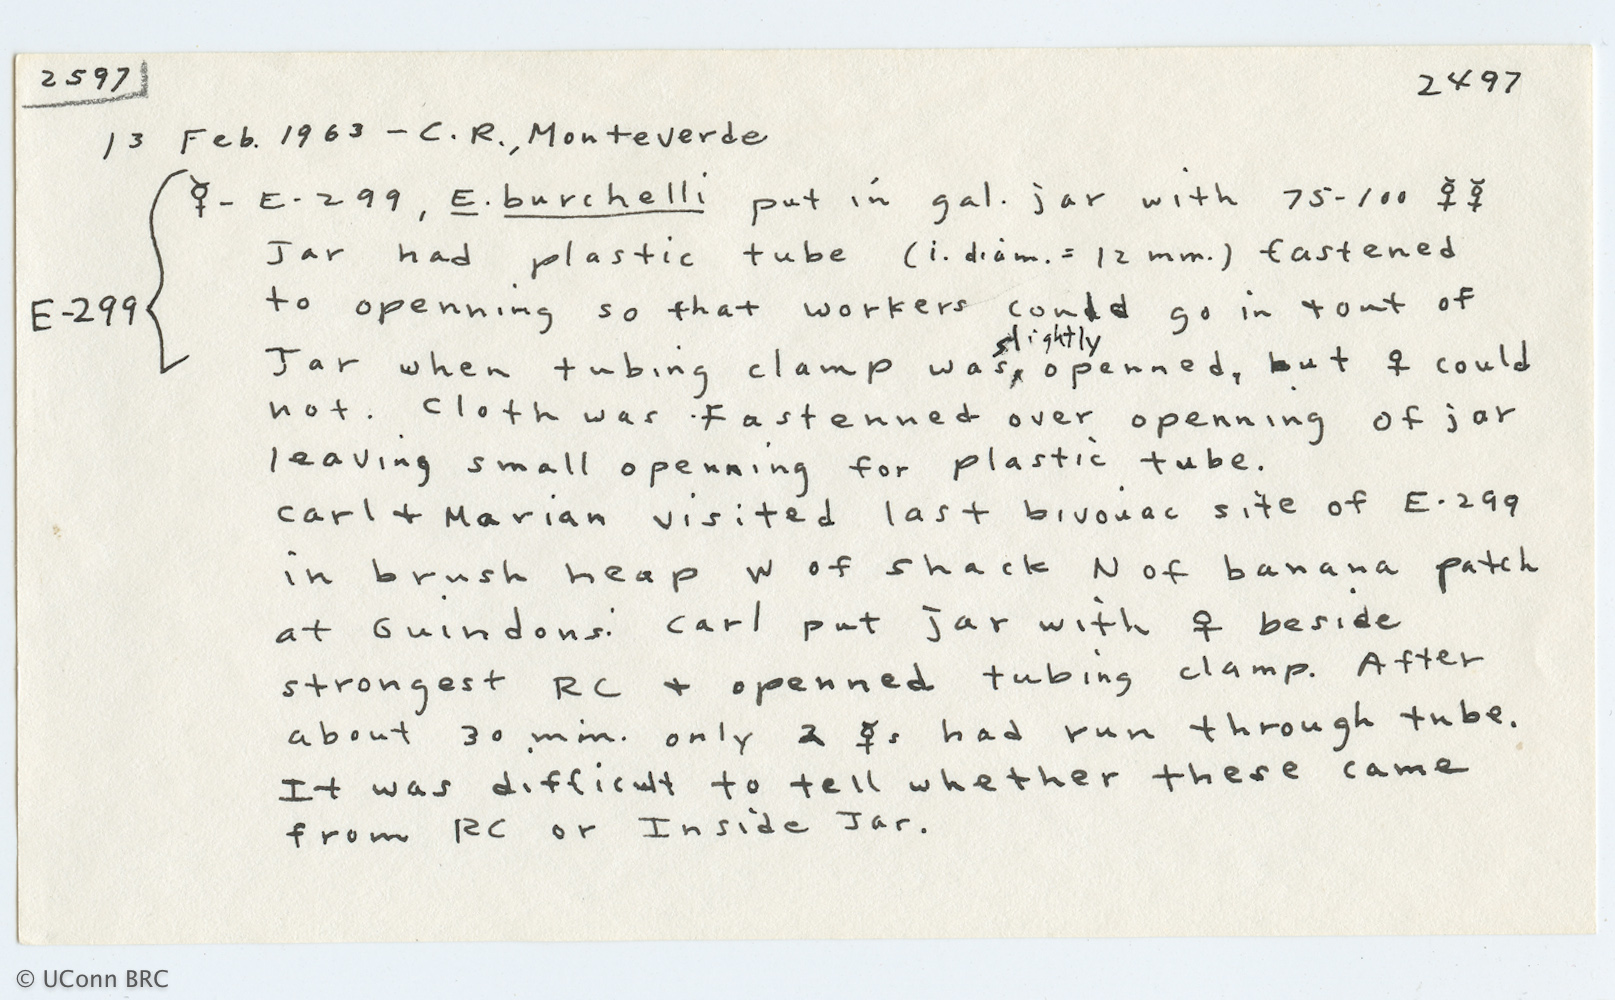 2597
2497
13 Feb. 1963 - C.R., Monteverde
☿ - E-299, E. burchelli put in gal. jar with 75-100 ☿☿
Jar had plastic tube (i. diam. = 12 mm.) fastened
to openning so that workers could go in + out of
E-299
slightly
Jar when tubing clamp was openned, but ♀ could
not. Cloth was fastenned over openning of jar
leaving small openning for plastic tube.
Carl + Marian visited last bivouac site of E-299
in brush heap W of shack N of banana patch
at Guindons. Carl put jar with ♀ beside
strongest RC + openned tubing clamp. After
about 30 min. only 2 ☿s had run through tube.
It was difficult to tell whether these came
from RC or Inside Jar.
© UConn BRC